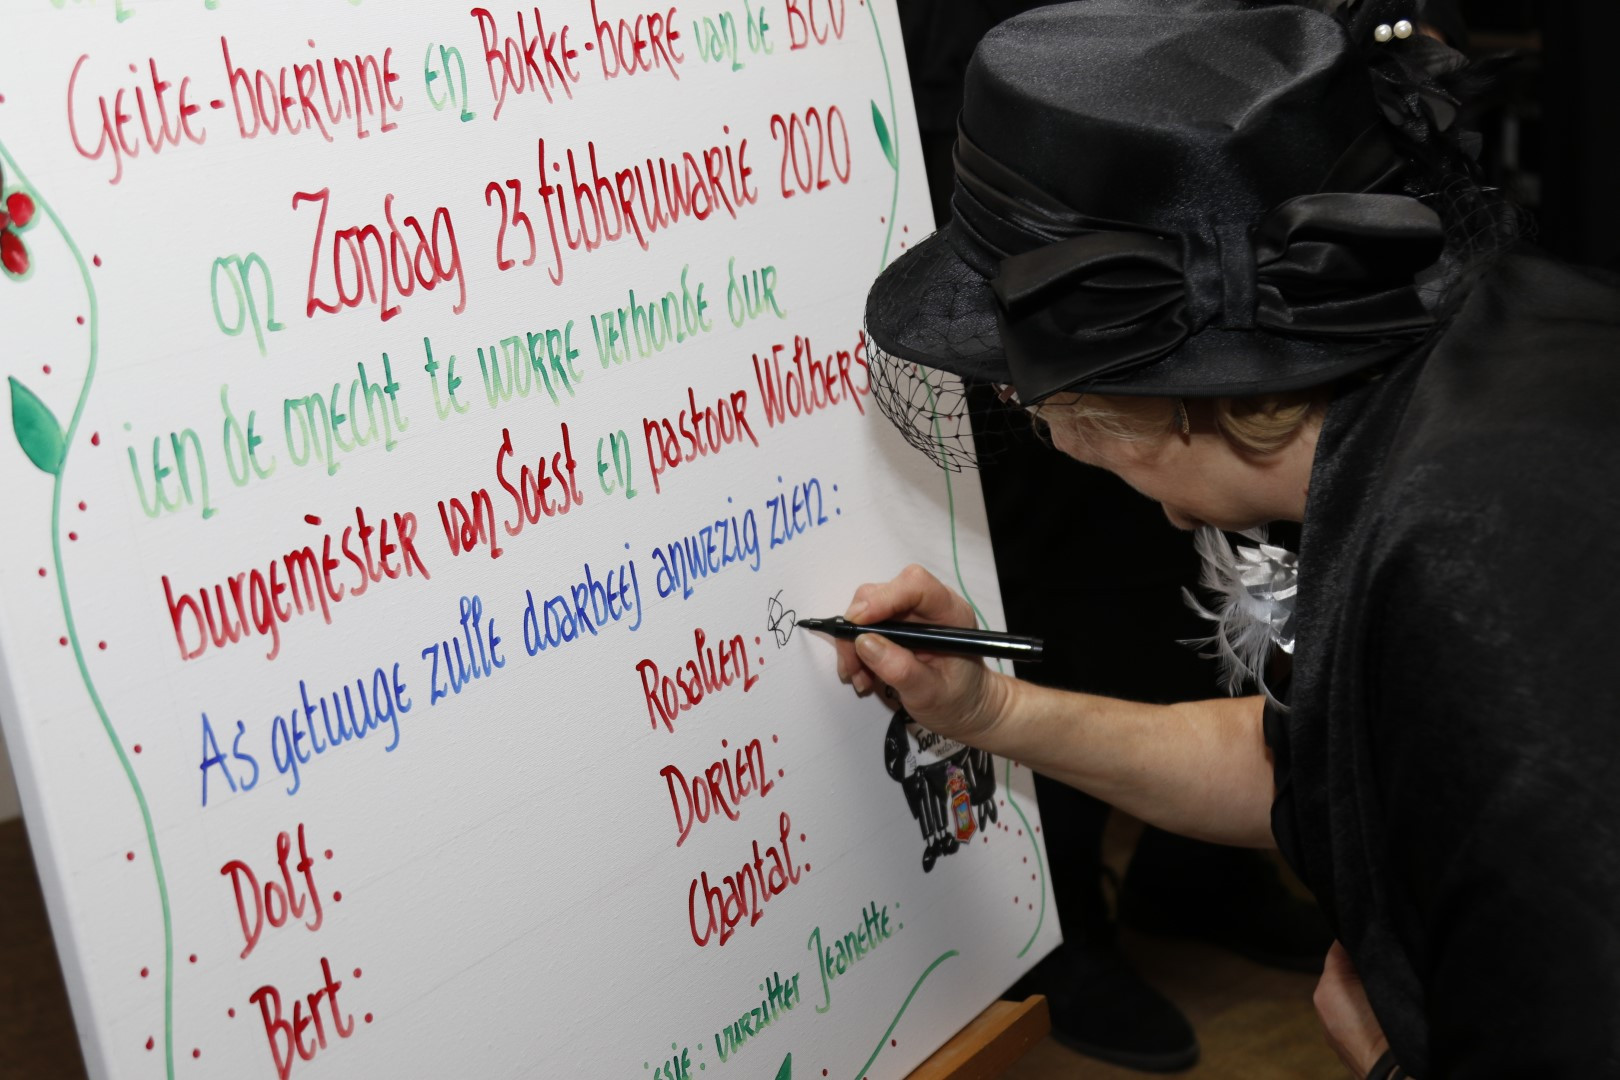 Geite-boerinne en Bokke-boere van de BCV
op Zondag 23 fibbruwarie 2020
ien de onecht te worre verbonde dur
burgemèster van Soest en pastoor Wolbers
As getuuge zulle doarbeej anwezig zien:
Rosalien:
Dorien:
Dolf:
Chantal:
Bert:
vurzitter Jeanette: